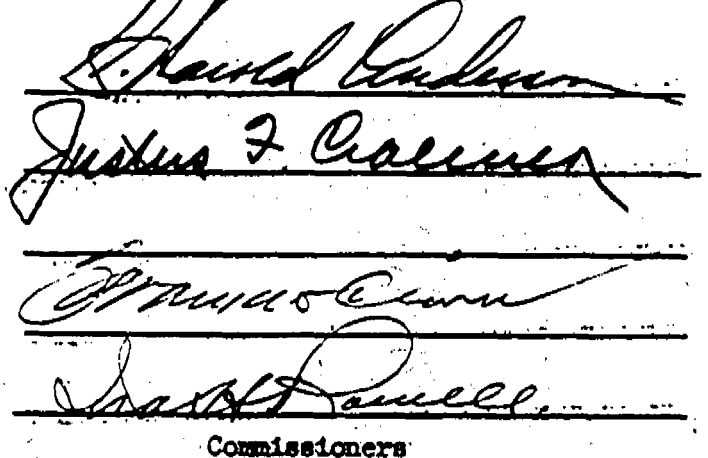 Harold Anderson
Justus F. Craemer
Ira H. Rowell
Commissioners